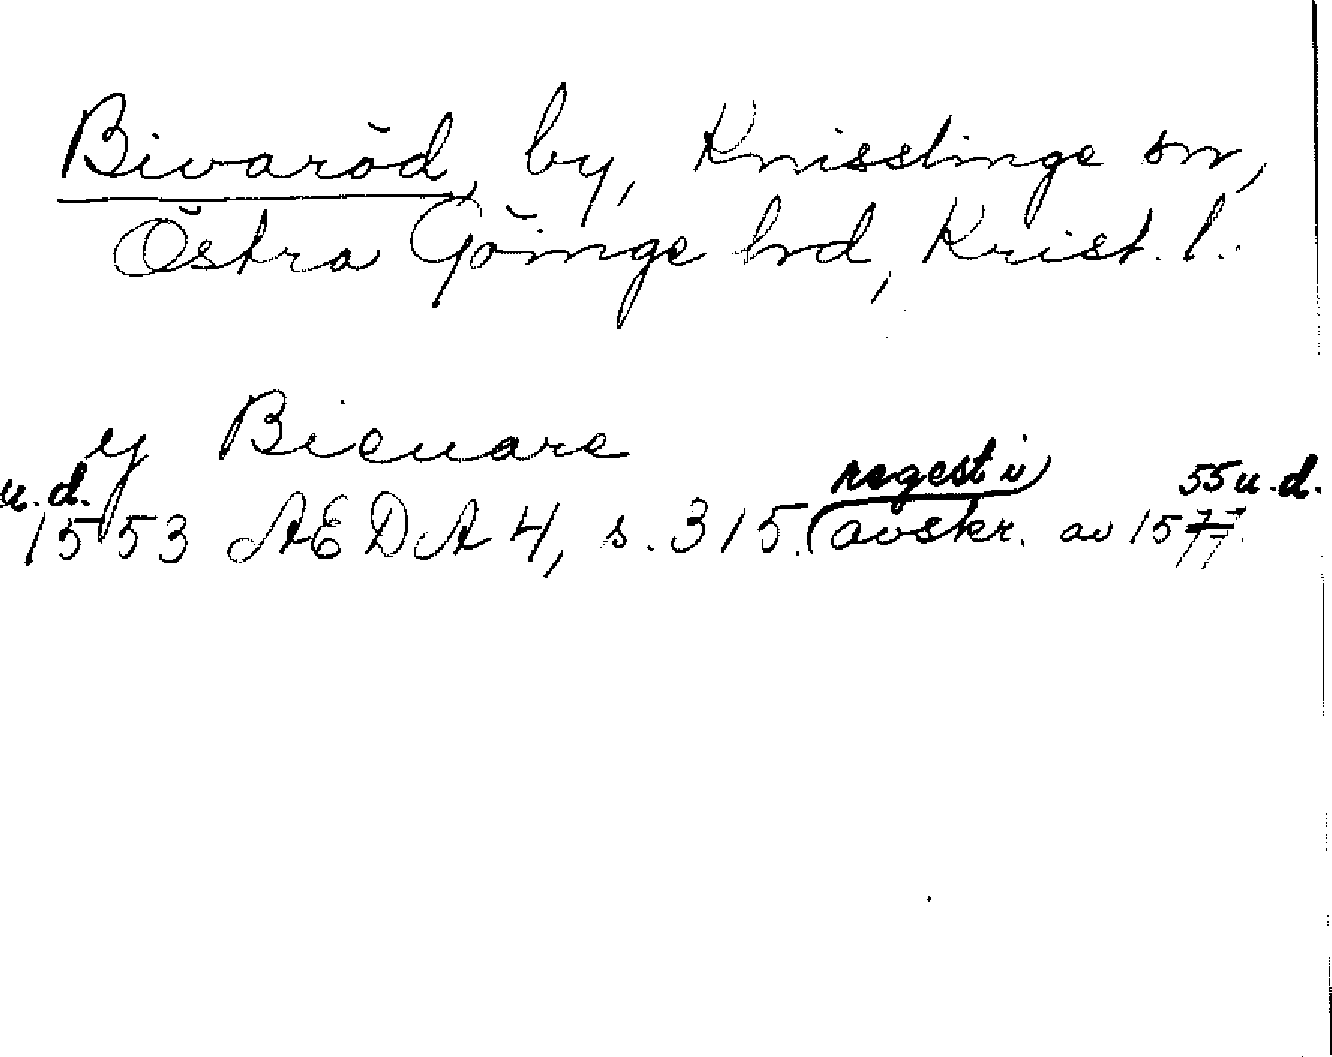 Bivaröd, by, Knisslinge sn,
Östra Göinge hd, Krist. l.
y Bieuare
regest i 55 u.d.
u.d.
1553 AEDA4, s. 315. (avskr. av 1577.